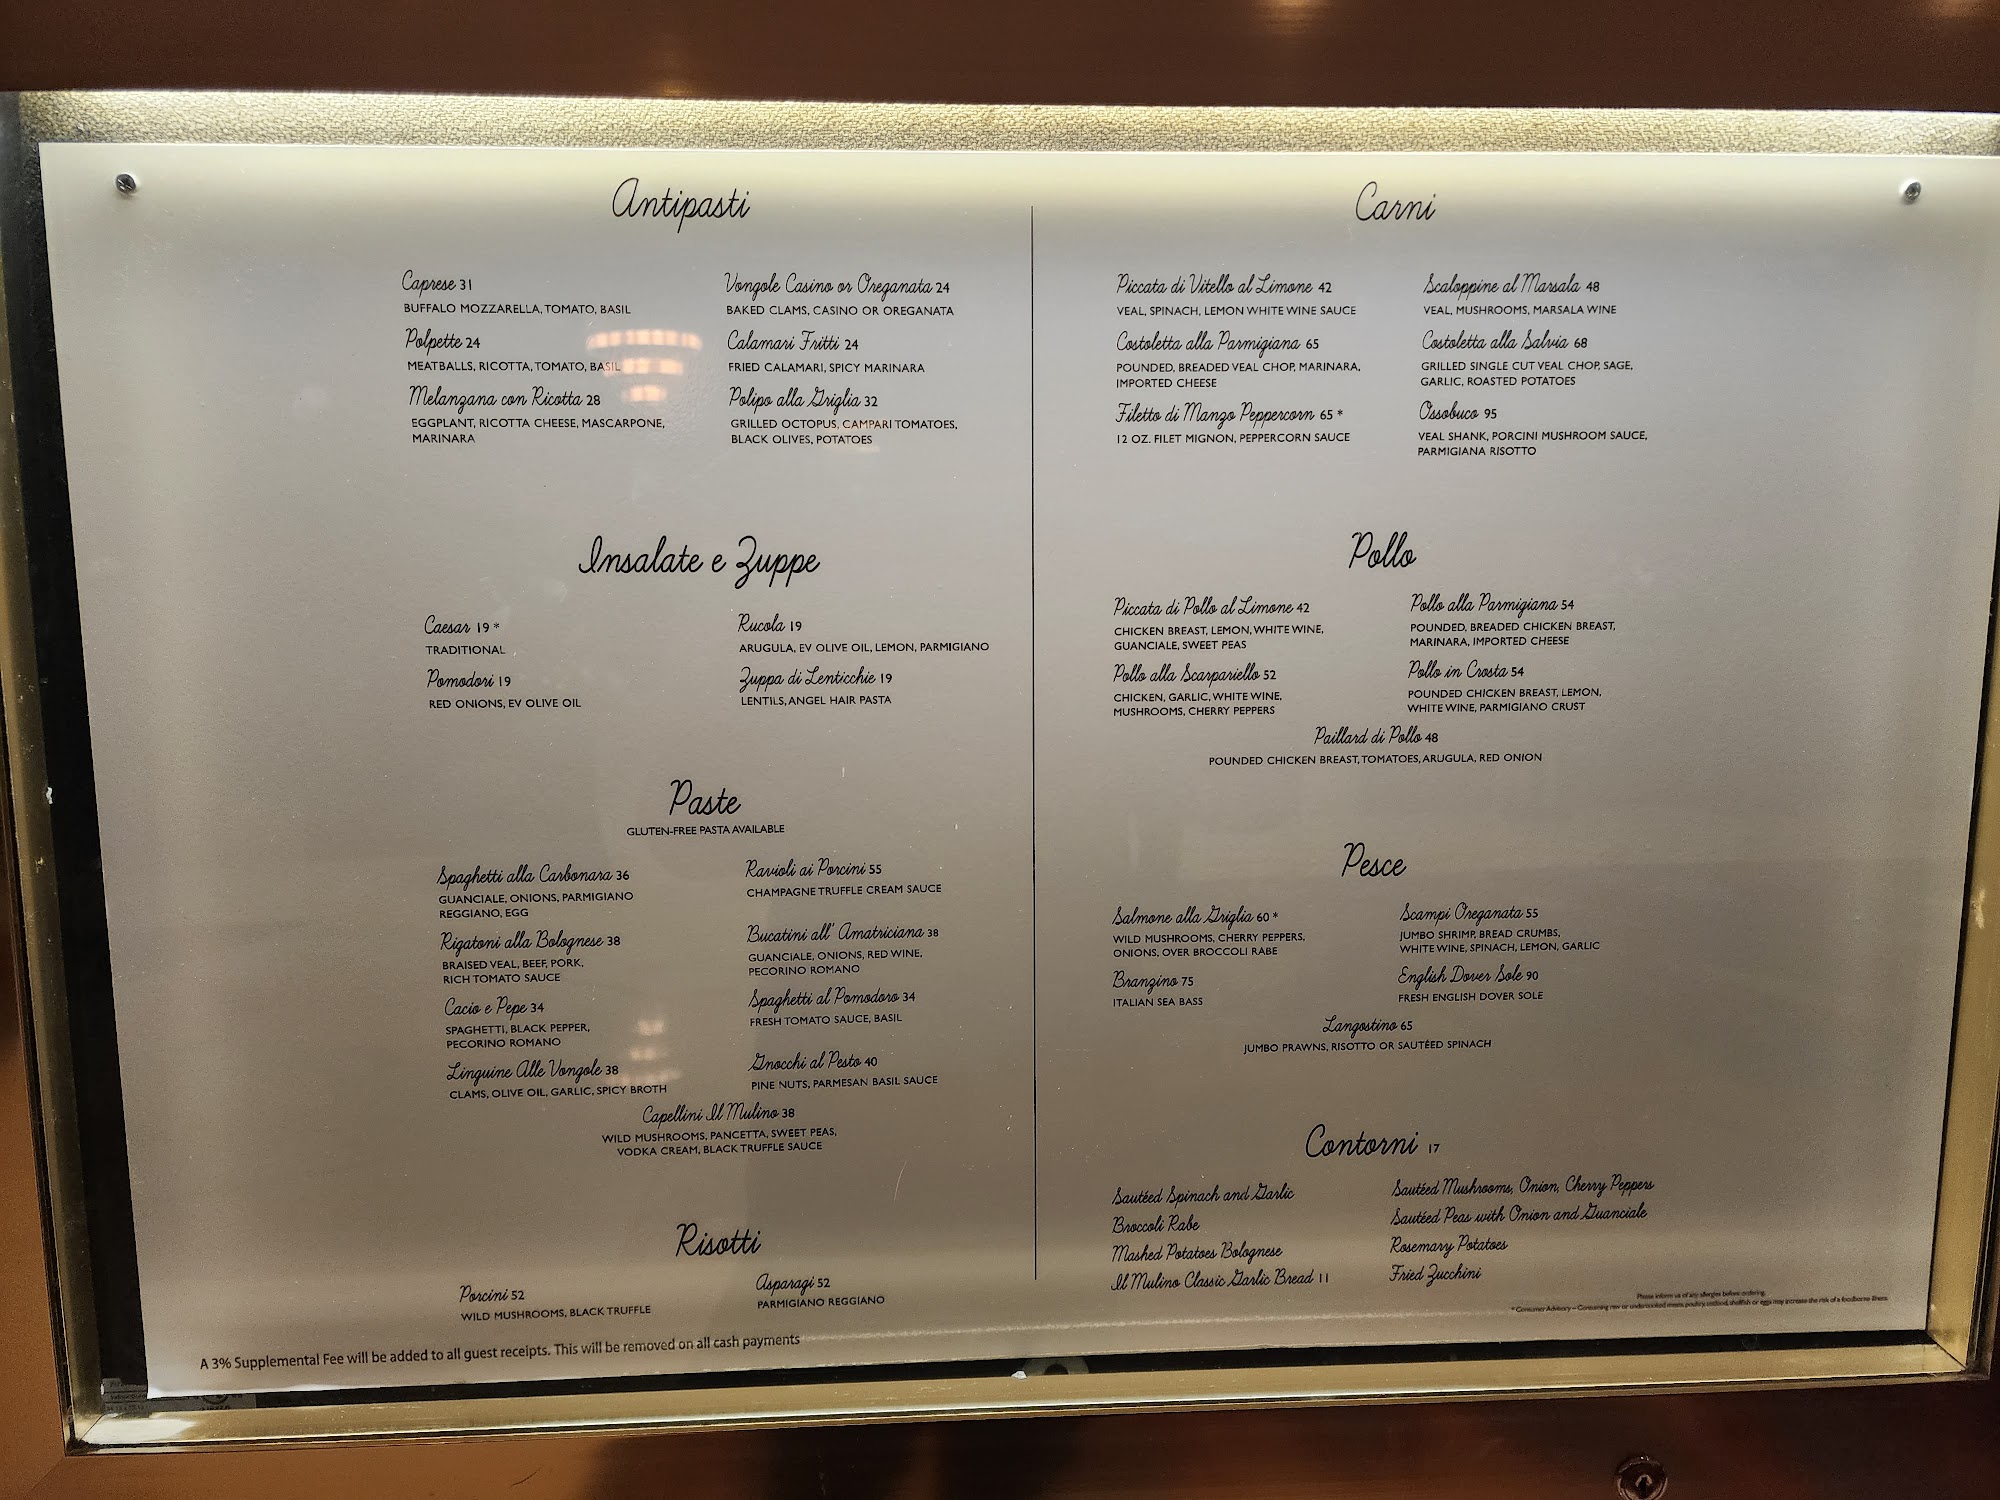 Antipasti
Caprese 31
BUFFALO MOZZARELLA, TOMATO, BASIL
Polpette 24
MEATBALLS, RICOTTA, TOMATO, BASIL
Melanzana con Ricotta 28
EGGPLANT, RICOTTA CHEESE, MASCARPONE,
MARINARA
Vongole Casino or Oreganata 24
BAKED CLAMS, CASINO OR OREGANATA
Calamari Fritti 24
FRIED CALAMARI, SPICY MARINARA
Polipo alla Griglia 32
GRILLED OCTOPUS, CAMPARI TOMATOES,
BLACK OLIVES, POTATOES
Insalate e Zuppe
Caesar 19 *
TRADITIONAL
Pomodori 19
RED ONIONS, EV OLIVE OIL
Rucola 19
ARUGULA, EV OLIVE OIL, LEMON, PARMIGIANO
Zuppa di Lenticchie 19
LENTILS, ANGEL HAIR PASTA
Paste
GLUTEN-FREE PASTA AVAILABLE
Spaghetti alla Carbonara 36
GUANCIALE, ONIONS, PARMIGIANO
REGGIANO, EGG
Rigatoni alla Bolognese 38
BRAISED VEAL, BEEF, PORK,
RICH TOMATO SAUCE
Cacio e Pepe 34
SPAGHETTI, BLACK PEPPER,
PECORINO ROMANO
Linguine Alle Vongole 38
CLAMS, OLIVE OIL, GARLIC, SPICY BROTH
Ravioli ai Porcini 55
CHAMPAGNE TRUFFLE CREAM SAUCE
Bucatini all' Amatriciana 38
GUANCIALE, ONIONS, RED WINE,
PECORINO ROMANO
Spaghetti al Pomodoro 34
FRESH TOMATO SAUCE, BASIL
Gnocchi al Pesto 40
PINE NUTS, PARMESAN BASIL SAUCE
Capellini Il Mulino 38
WILD MUSHROOMS, PANCETTA, SWEET PEAS,
VODKA CREAM, BLACK TRUFFLE SAUCE
Risotti
Porcini 52
WILD MUSHROOMS, BLACK TRUFFLE
Asparagi 52
PARMIGIANO REGGIANO
A 3% Supplemental Fee will be added to all guest receipts. This will be removed on all cash payments
Carni
Piccata di Vitello al Limone 42
VEAL, SPINACH, LEMON WHITE WINE SAUCE
Costoletta alla Parmigiana 65
POUNDED, BREADED VEAL CHOP, MARINARA,
IMPORTED CHEESE
Filetto di Manzo Peppercorn 65 *
12 OZ. FILET MIGNON, PEPPERCORN SAUCE
Scaloppine al Marsala 48
VEAL, MUSHROOMS, MARSALA WINE
Costoletta alla Salvia 68
GRILLED SINGLE CUT VEAL CHOP, SAGE,
GARLIC, ROASTED POTATOES
Ossobuco 95
VEAL SHANK, PORCINI MUSHROOM SAUCE,
PARMIGIANA RISOTTO
Pollo
Piccata di Pollo al Limone 42
CHICKEN BREAST, LEMON, WHITE WINE,
GUANCIALE, SWEET PEAS
Pollo alla Scarpariello 52
CHICKEN, GARLIC, WHITE WINE,
MUSHROOMS, CHERRY PEPPERS
Pollo alla Parmigiana 54
POUNDED, BREADED CHICKEN BREAST,
MARINARA, IMPORTED CHEESE
Pollo in Crosta 54
POUNDED CHICKEN BREAST, LEMON,
WHITE WINE, PARMIGIANO CRUST
Paillard di Pollo 48
POUNDED CHICKEN BREAST, TOMATOES, ARUGULA, RED ONION
Pesce
Salmone alla Griglia 60 *
WILD MUSHROOMS, CHERRY PEPPERS,
ONIONS, OVER BROCCOLI RABE
Branzino 75
ITALIAN SEA BASS
Scampi Oreganata 55
JUMBO SHRIMP, BREAD CRUMBS,
WHITE WINE, SPINACH, LEMON, GARLIC
English Dover Sole 90
FRESH ENGLISH DOVER SOLE
Langostino 65
JUMBO PRAWNS, RISOTTO OR SAUTÉED SPINACH
Contorni 17
Sautéed Spinach and Garlic
Broccoli Rabe
Mashed Potatoes Bolognese
Il Mulino Classic Garlic Bread 11
Sautéed Mushrooms, Onion, Cherry Peppers
Sautéed Peas with Onion and Guanciale
Rosemary Potatoes
Fried Zucchini
Please inform us of any allergies before ordering.
* Consumer Advisory – Consuming raw or undercooked meats, poultry, seafood, shellfish or eggs may increase the risk of a foodborne illness.